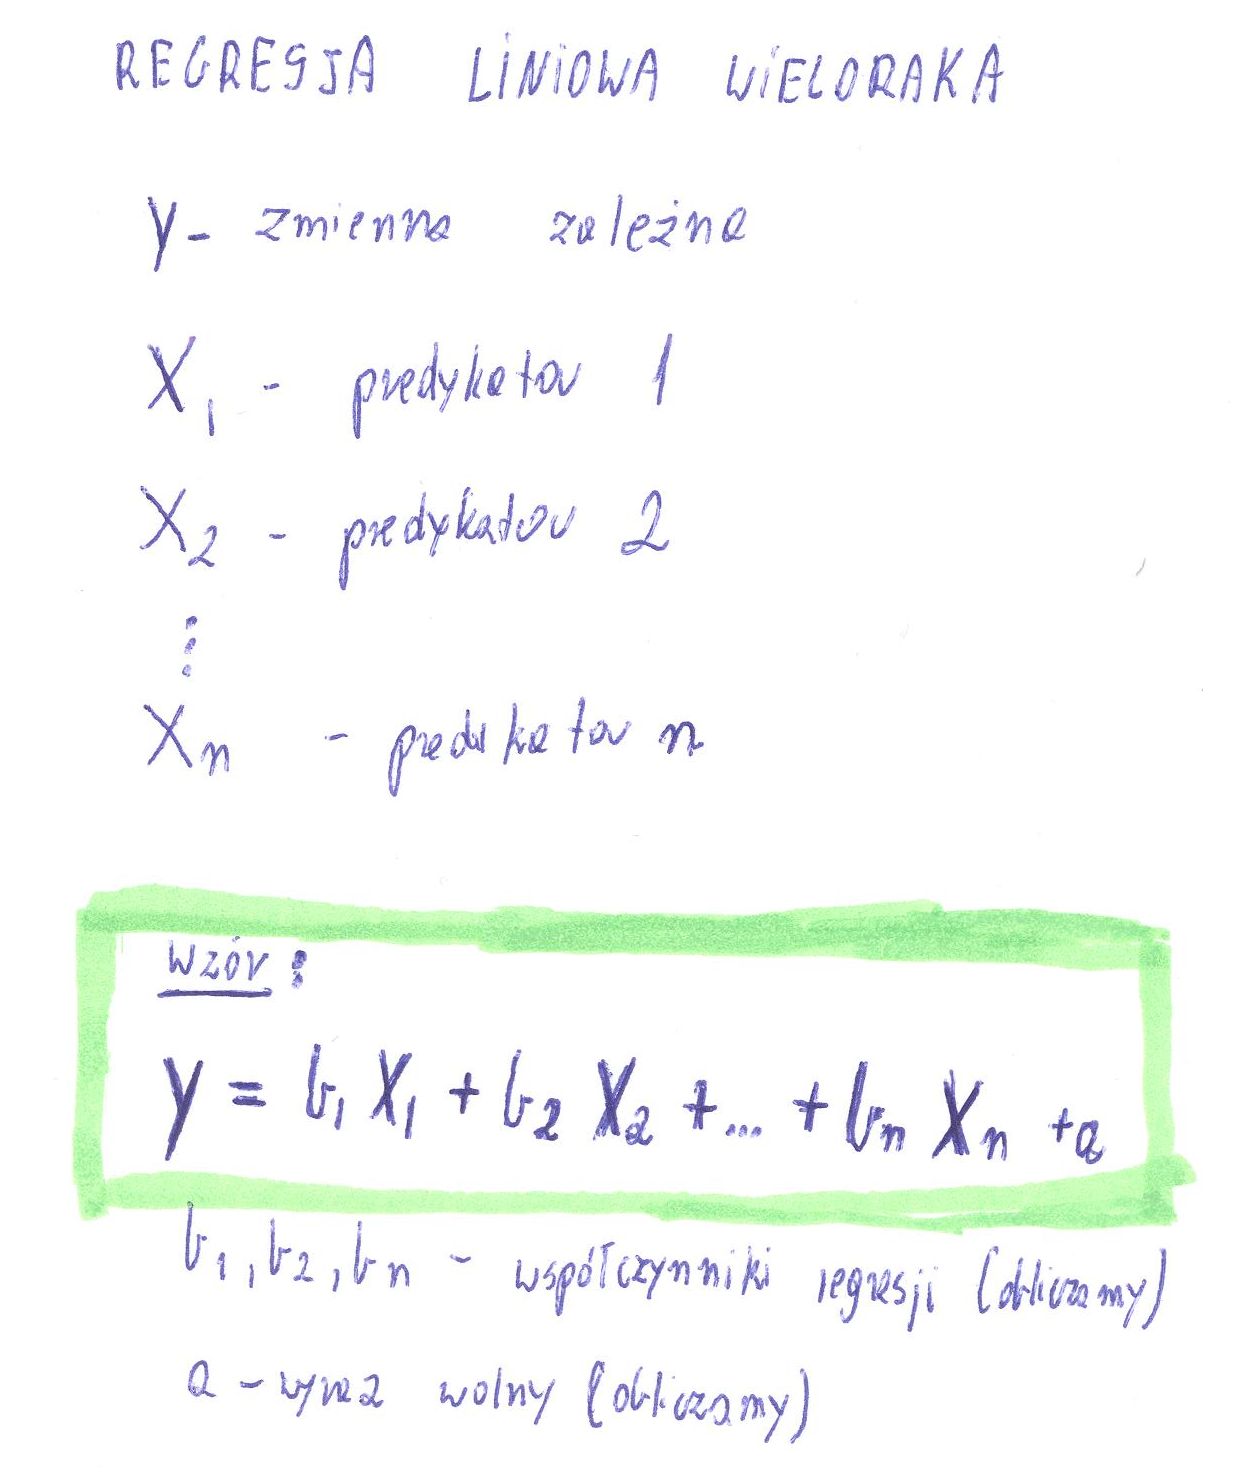 REGRESJA LINIOWA WIELORAKA
y - zmienna zależna
X₁ - predykator 1
X₂ - predykator 2
⋮
Xₙ - predykator n
Wzór:
y = b₁ X₁ + b₂ X₂ + ... + bₙ Xₙ + a
b₁, b₂, bₙ - współczynniki regresji (obliczamy)
a - wyraz wolny (obliczamy)